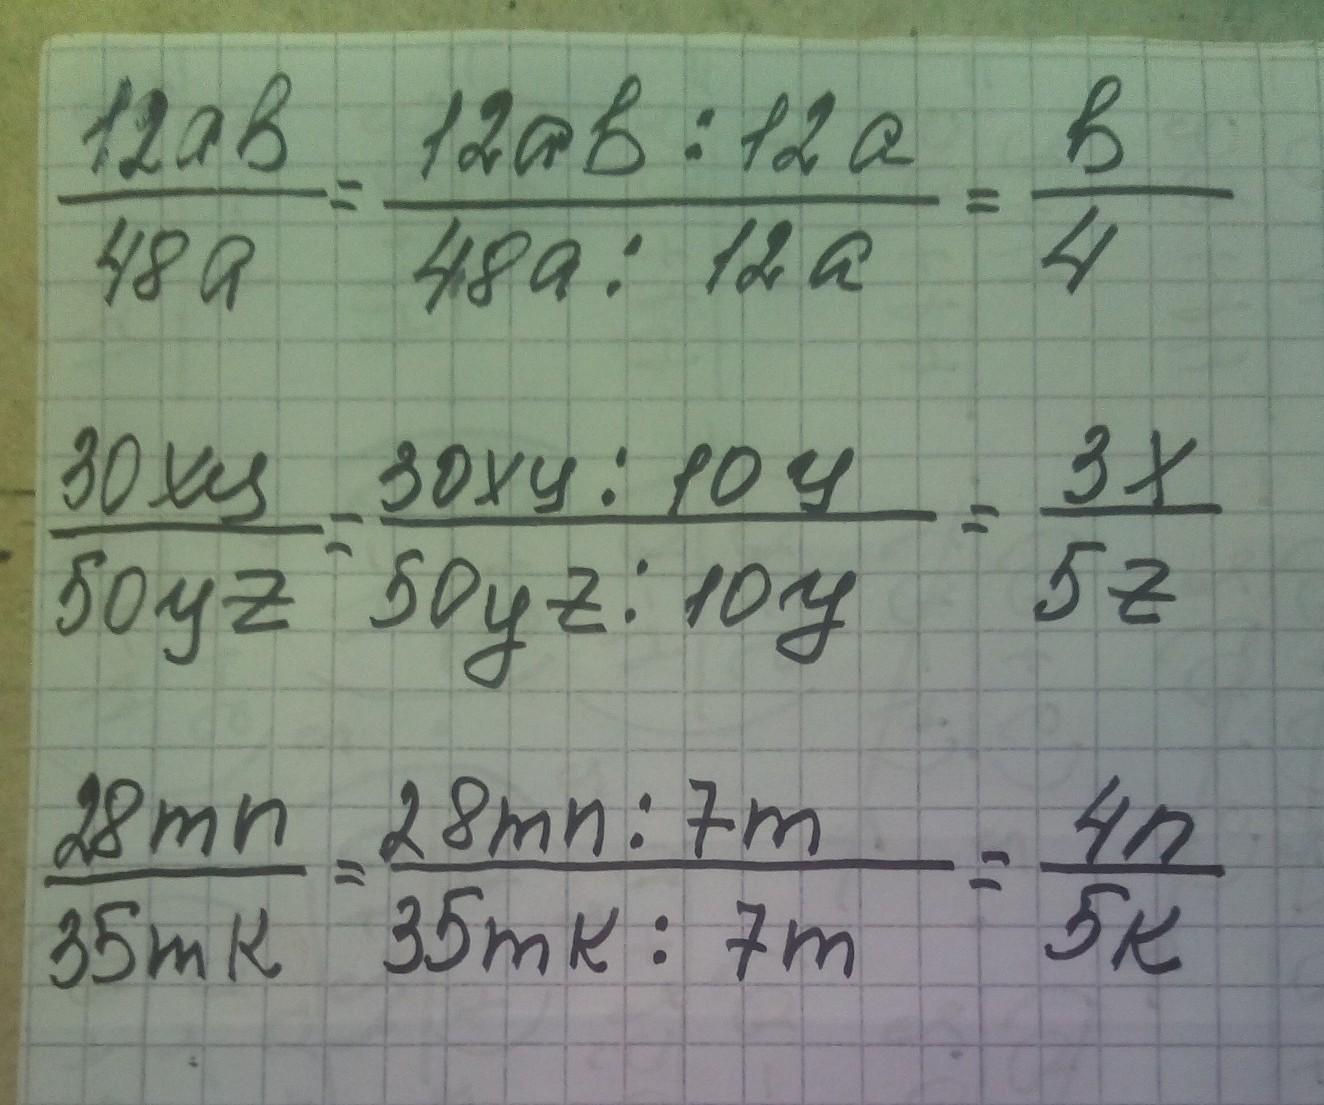 12ab/48a = 12ab : 12a/48a : 12a = b/4
30xy/50yz = 30xy : 10y/50yz : 10y = 3x/5z
28mn/35mk = 28mn : 7m/35mk : 7m = 4n/5k